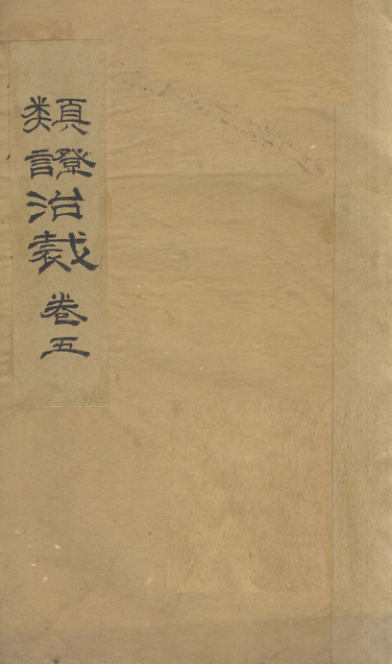 類證治裁卷五